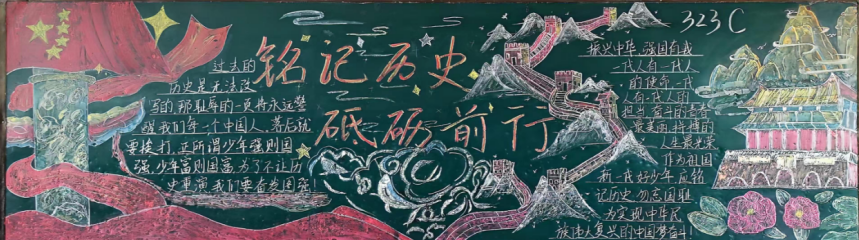 323C
铭记历史
砥砺前行
过去的
历史是无法改
写的那耻辱的一页将永远警
醒我们每一个中国人，落后就
要挨打，正所谓少年强则国
强，少年富则国富，为了不让历
史重演，我们要奋发图强！
振兴中华，强国有我
一代人有一代人
的使命，一代
人有一代人的
担当，奋斗的青春
最美丽，拼搏的
人生最光荣
作为祖国
新一代好少年，应铭
记历史，勿忘国耻
为实现中华民
族伟大复兴的中国梦奋斗！